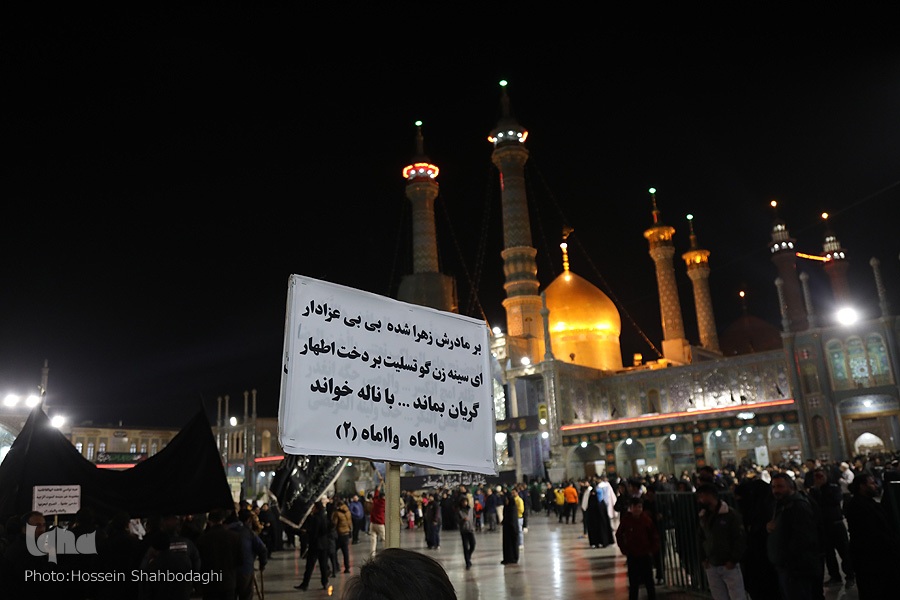 بر مادرش زهرا شده بی بی عزادار
ای سینه زن گو تسلیت بر دخت اطهار
گریان بماند ... با ناله خواند
وااماه وااماه (۲)
iqna
Photo:Hossein Shahbodaghi